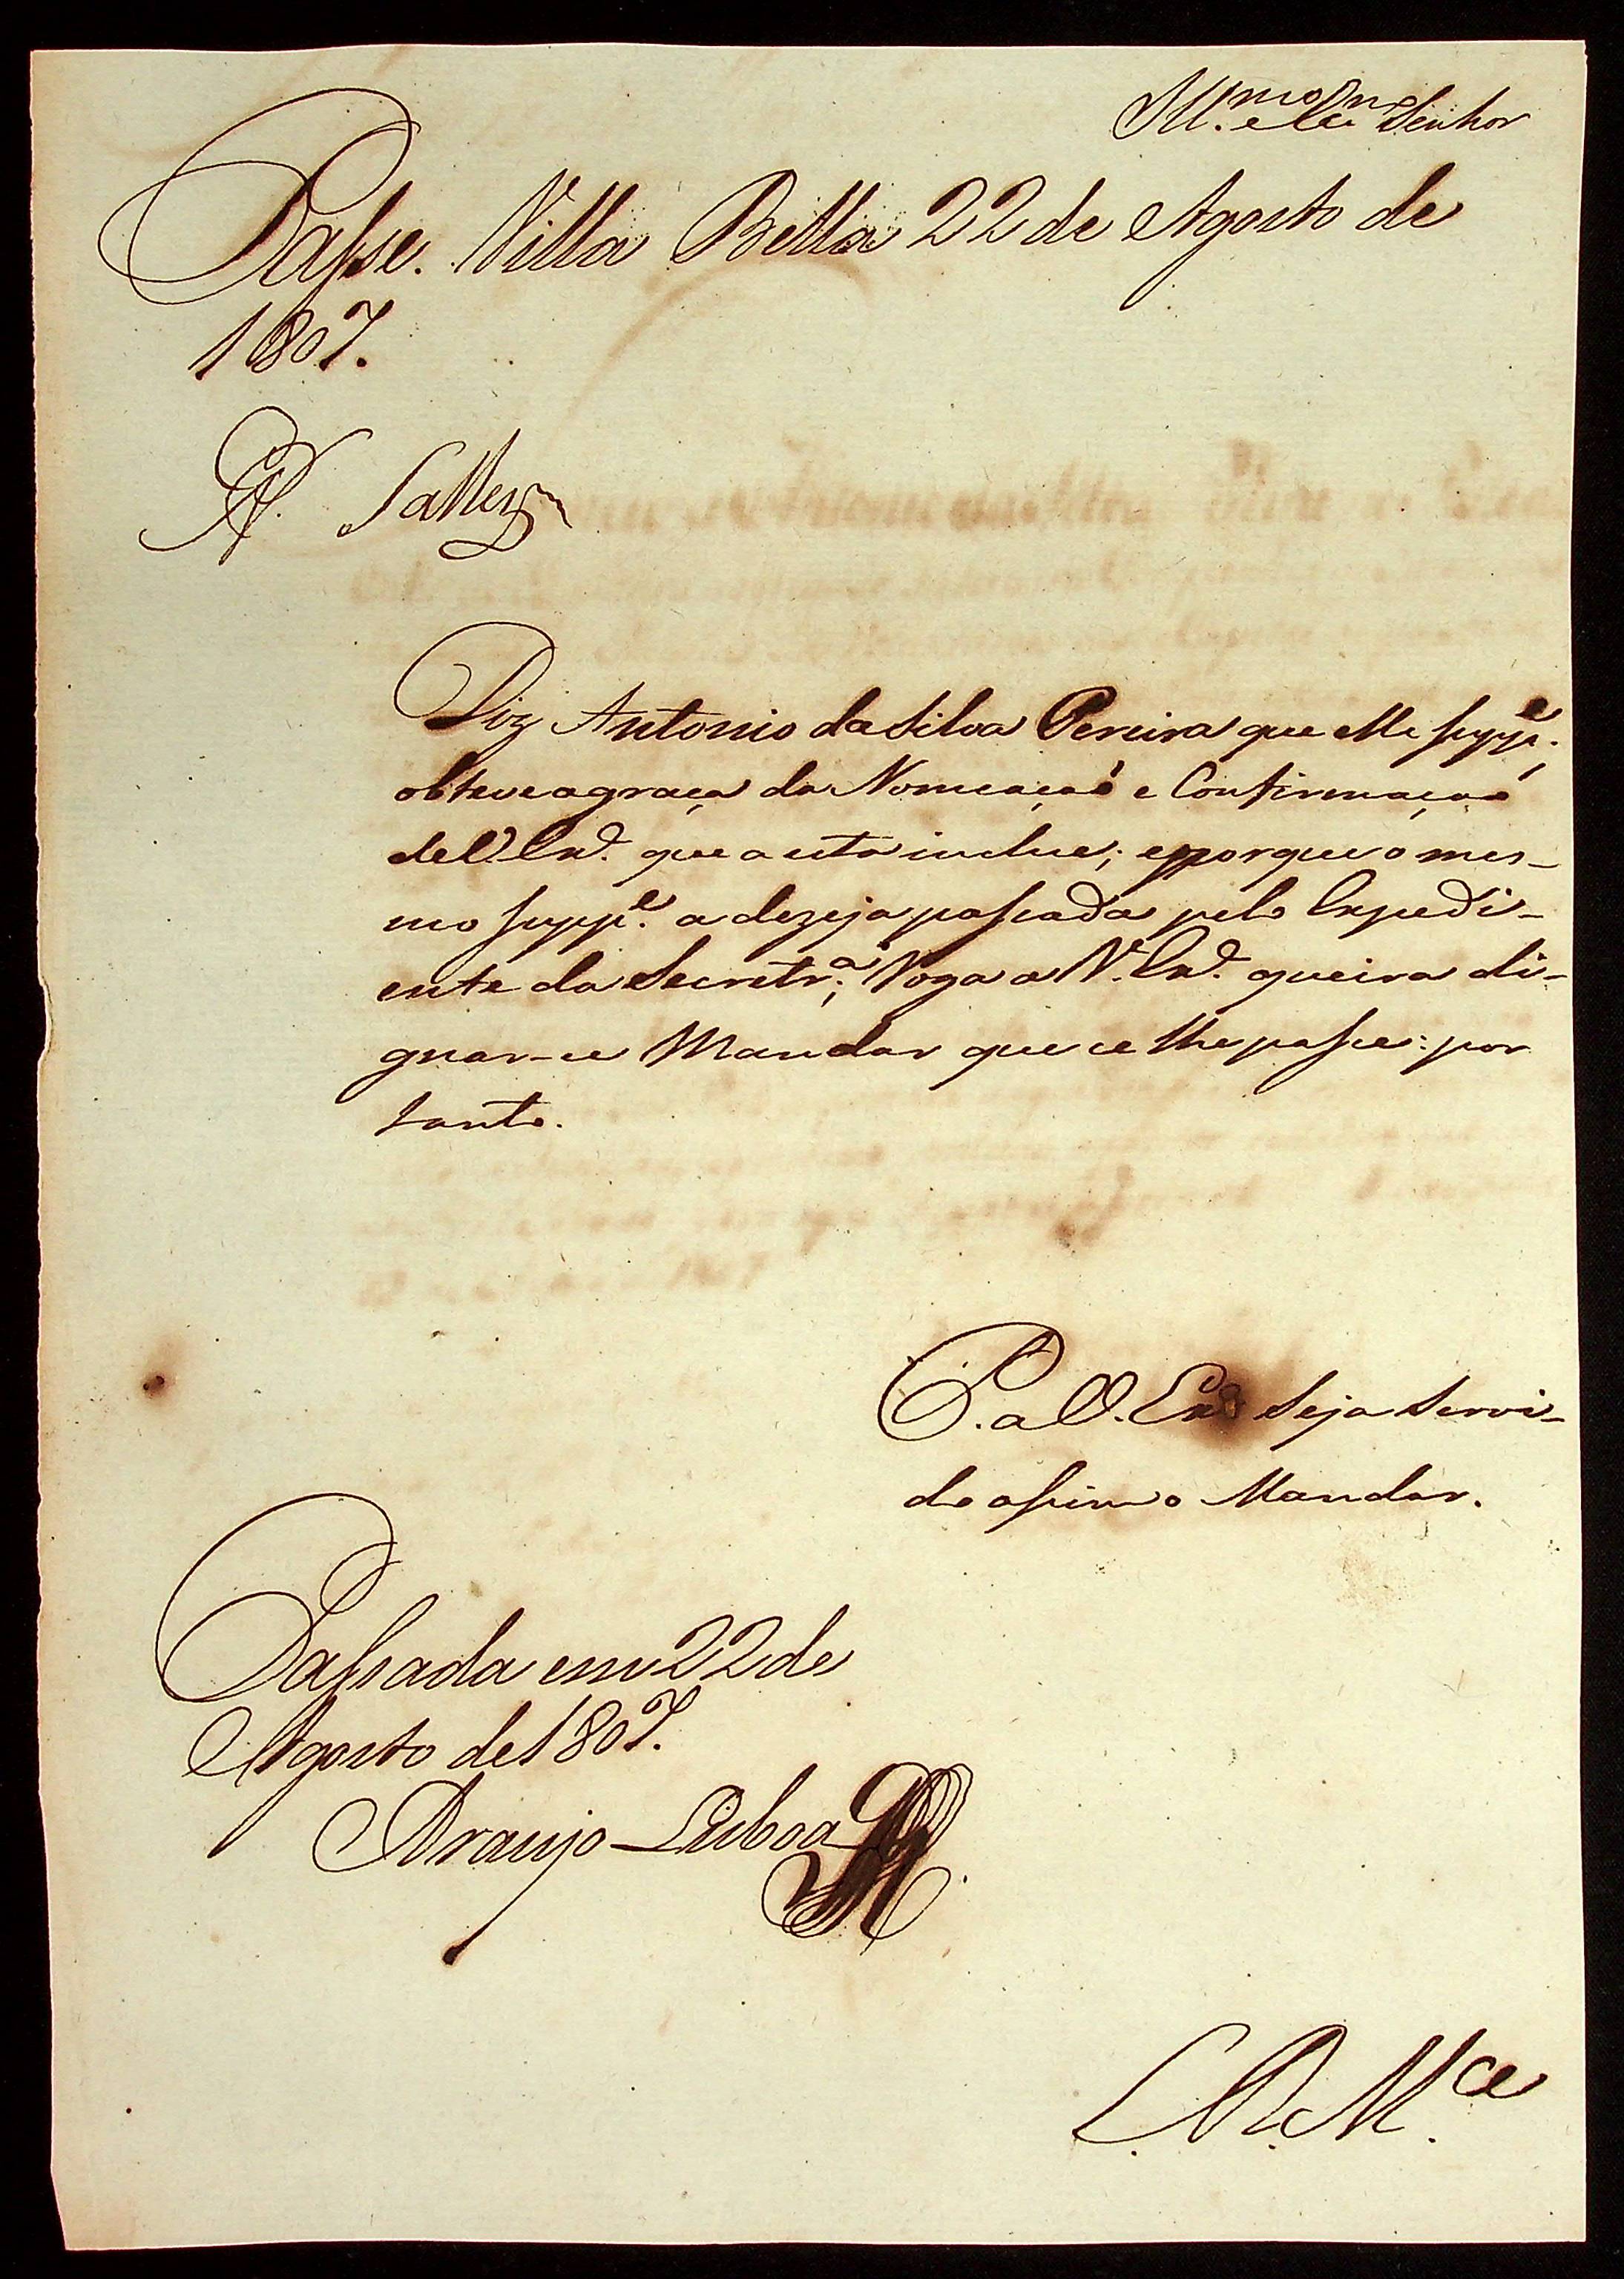 Ill.mo e Ex.mo Senhor
Passe. Villa Bella 22 de Agosto de
1807.
Salles
Diz Antonio da Silva Pereira que elle supp.e
obteve a graça da Nomeaçaõ e Confirmaçaõ
de V. Ex.ª que a esta inclue; e porque o mes-
mo supp.e a dezeja passada pelo Expedi-
ente da Secretr.ª; Roga a V. Ex.ª queira di-
gnar-se Mandar que se lhe passe: por
tanto.
P. a V. Ex.ª Seja Servi-
do assim o Mandar.
Passada em 22 de
Agosto de 1807.
Araujo Lisboa
E. R. M.ce